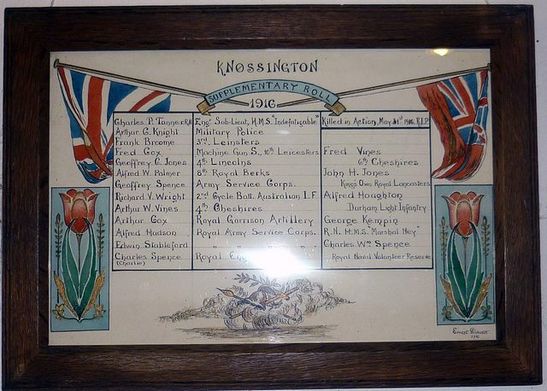 KNOSSINGTON
SUPPLEMENTARY ROLL
1916
Charles P. Tanner R.N. Engr Sub-Lieut, H.M.S. "Indefatigable" Killed in Action, May 31st 1916. R.I.P.
Arthur G. Knight Military Police
Frank Broome 3rd Leinsters
Fred Cox Machine Gun S., 10th Leicesters Fred Vines
Geoffrey C. Jones 4th Lincolns 6th Cheshires
Alfred W. Palmer 8th Royal Berks John H. Jones
Geoffrey Spence Army Service Corps. Kings Own Royal Lancasters
Richard V. Wright 2nd Cycle Batt. Australian I.F. Alfred Houghton
Arthur W. Vines 4th Cheshires Durham Light Infantry
Arthur Cox Royal Garrison Artillery George Kempin
Alfred Hudson Royal Army Service Corps. R.N. H.M.S. "Marshal Ney"
Edwin Stableford " " " " Charles Wm Spence
Charles Spence Royal Eng Royal Naval Volunteer Reserve
(Charlie)